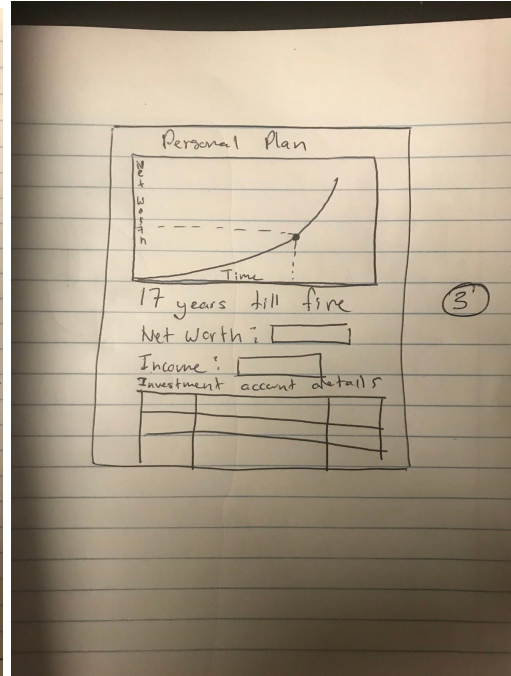 Personal Plan
Net Worth
Time
17 years till fire
3
Net Worth:
Income:
Investment account details